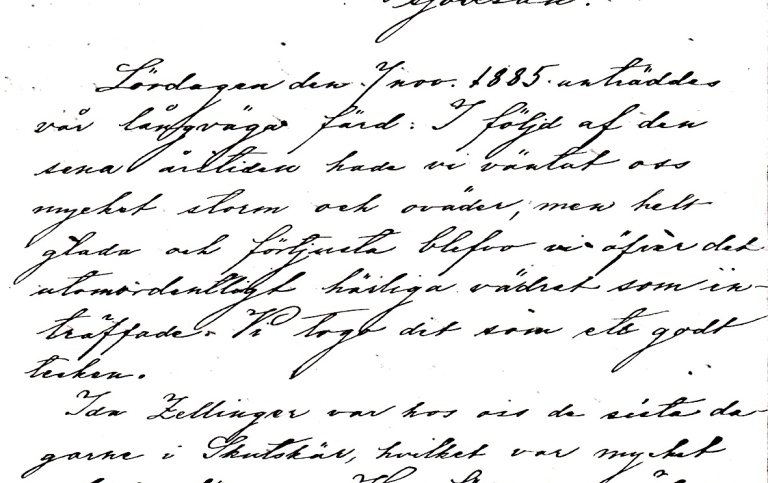 Lördagen den 7 nov. 1885. anträddes
vår långväga färd: I följd af den
sena årstiden hade vi väntat oss
mycket storm och oväder, men helt
glada och förtjusta blefvo vi öfver det
utomordentligt härliga vädret som in-
träffade. Vi togo det som ett godt
tecken.
Ida Zellinger var hos oss de sista da-
garne i Skutskär, hvilket var mycket